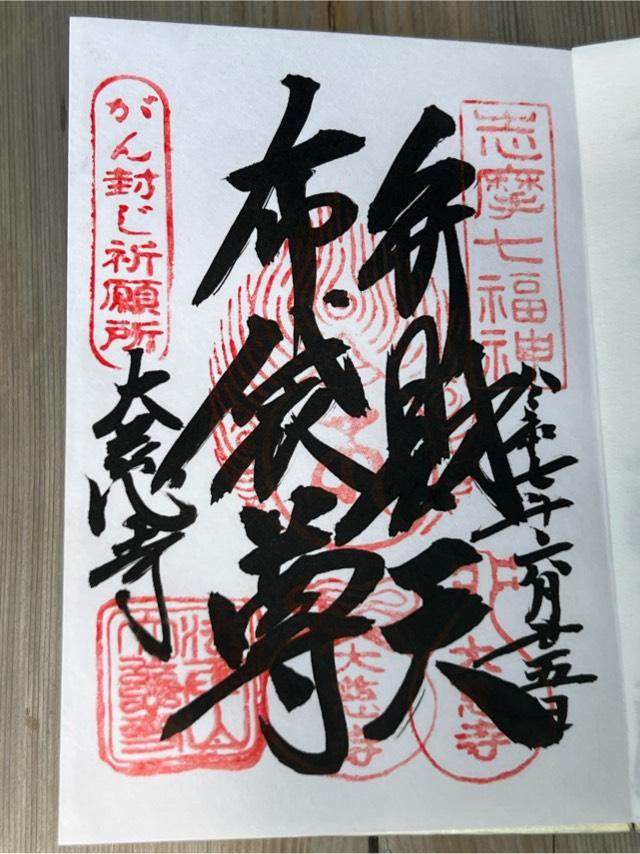 志摩七福神
令和七年六月廿五日
弁財天
布袋尊
大慈寺
がん封じ祈願所
大慈寺
大慈寺